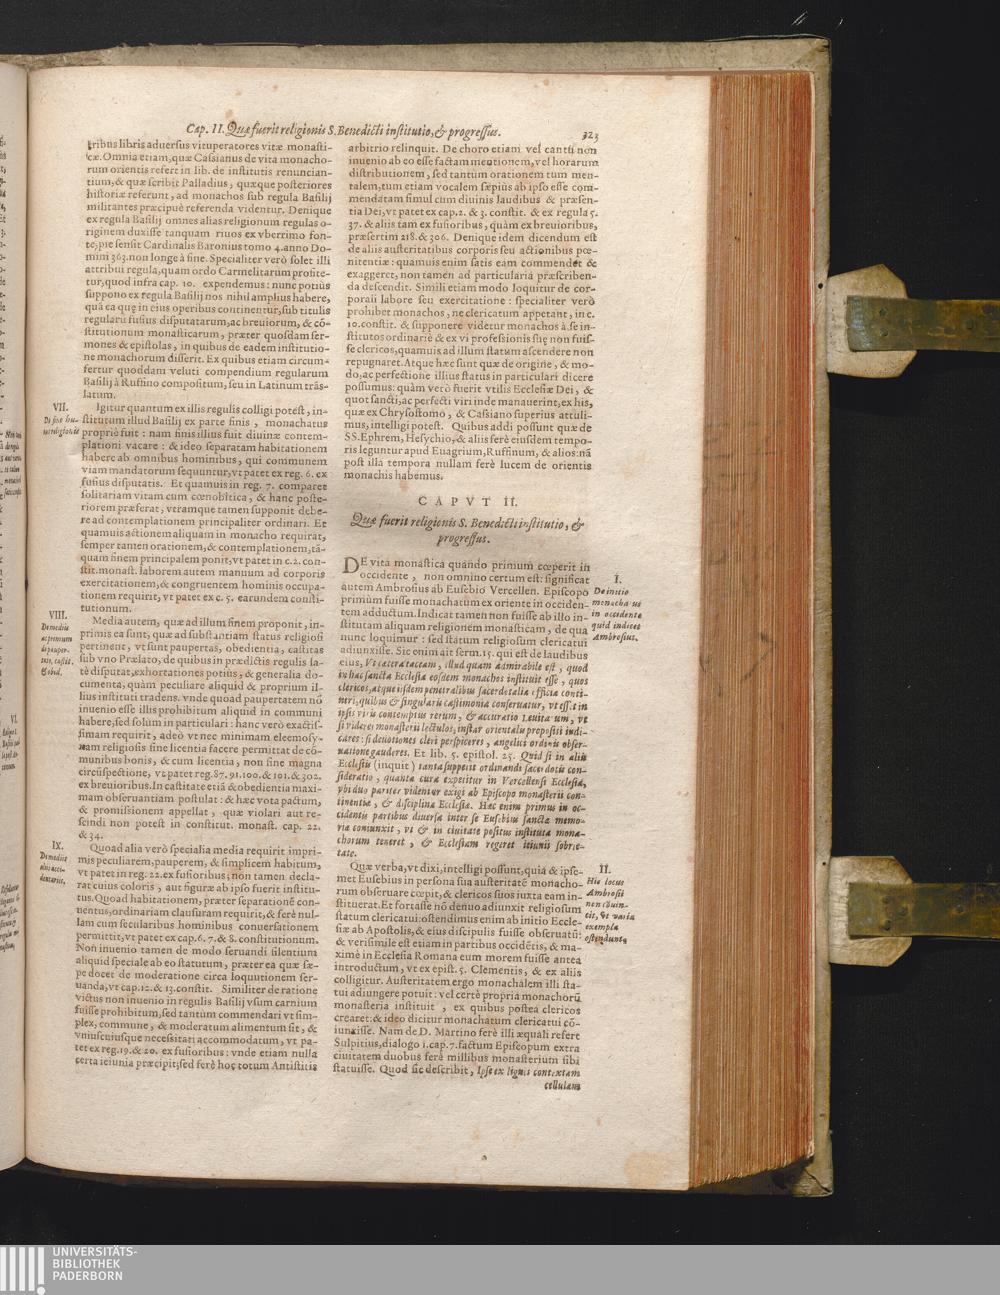 Cap. II. Quæ fuerit religionis S. Benedicti institutio, & progressus.
323
tribus libris aduersus vituperatores vitæ monasti-
cæ. Omnia etiam, quæ Cassianus de vita monacho-
rum orientis refert in lib. de institutis renuncian-
tium, & quæ scribit Palladius, quæque posteriores
historiæ referunt, ad monachos sub regula Basilij
militantes præcipuè referenda videntur. Denique
ex regula Basilij omnes alias religionum regulas o-
riginem duxisse tanquam riuos ex vberrimo fon-
te, pie sensit Cardinalis Baronius tomo 4. anno Do-
mini 363. non longe à fine. Specialiter verò solet illi
attribui regula, quam ordo Carmelitarum profite-
tur, quod infra cap. 10. expendemus: nunc potiùs
suppono ex regula Basilij nos nihil amplius habere,
quã ea quę in eius operibus continentur, sub titulis
regularũ fusius disputatarum, ac breuiorum, & cõ-
stitutionum monasticarum, præter quosdam ser-
mones & epistolas, in quibus de eadem institutio-
ne monachorum disserit. Ex quibus etiam circum-
fertur quoddam veluti compendium regularum
Basilij à Ruffino compositum, seu in Latinum trãs-
latum.
VII.
De fine hu-
ius religionis
Igitur quantum ex illis regulis colligi potest, in-
stitutum illud Basilij ex parte finis, monachatus
propriè fuit: nam finis illius fuit diuinæ contem-
plationi vacare: & ideo separatam habitationem
habere ab omnibus hominibus, qui communem
viam mandatorum sequuntur, vt patet ex reg. 6. ex
fusius disputatis. Et quamuis in reg. 7. comparet
solitariam vitam cum cœnobitica, & hanc poste-
riorem præferat, vtramque tamen supponit debe-
re ad contemplationem principaliter ordinari. Et
quamuis actionem aliquam in monacho requirat,
semper tamen orationem, & contemplationem, tã-
quam finem principalem ponit, vt patet in c. 2. con-
stit. monast. laborem autem manuum ad corporis
exercitationem, & congruentem hominis occupa-
tionem requirit, vt patet ex c. 5. earundem consti-
tutionum.
VIII.
De mediis
ac primum
de pauper-
tate, castit.
& obed.
Media autem, quæ ad illum finem proponit, in-
primis ea sunt, quæ ad substantiam status religiosi
pertinent, vt sunt paupertas, obedientia, castitas
sub vno Prælato, de quibus in prædictis regulis la-
tè disputat, exhortationes potius, & generalia do-
cumenta, quàm peculiare aliquid & proprium il-
lius instituti tradens. vnde quoad paupertatem nõ
inuenio esse illis prohibitum aliquid in communi
habere, sed solùm in particulari: hanc verò exactis-
simam requirit, adeò vt nec minimam eleemosy-
nam religiosis sine licentia facere permittat de cõ-
munibus bonis, & cum licentia, non sine magna
circũspectione, vt patet reg. 87. 91. 100. & 101. & 302.
ex breuioribus. In castitate etiã & obedientia maxi-
mam obseruantiam postulat: & hæc vota pactum,
& promissionem appellat, quæ violari aut re-
scindi non potest in constitut. monast. cap. 22.
& 34.
IX.
De mediis
aliis acci-
dentariis.
Quoad alia verò specialia media requirit impri-
mis peculiarem, pauperem, & simplicem habitum,
vt patet in reg. 22. ex fusioribus; non tamen decla-
rat cuius coloris, aut figuræ ab ipso fuerit institu-
tus. Quoad habitationem, præter separationẽ con-
uentus, ordinariam clausuram requirit, & ferè nul-
lam cum secularibus hominibus conuersationem
permittit, vt patet ex cap. 6. 7. & 8. constitutionum.
Non inuenio tamen de modo seruandi silentium
aliquid speciale ab eo statutum, præter ea quæ sæ-
pe docet de moderatione circa loquutionem ser-
uanda, vt cap. 12. & 13. constit. Similiter de ratione
victus non inuenio in regulis Basilij vsum carnium
fuisse prohibitum, sed tantùm commendari vt sim-
plex, commune, & moderatum alimentum sit, &
vniuscuiusque necessitati accommodatum, vt pa-
tet ex reg. 19. & 20. ex fusioribus: vnde etiam nulla
certa ieiunia præcipit; sed ferè hoc totum Antistitis
arbitrio relinquit. De choro etiam vel cantu non
inuenio ab eo esse factam mentionem, vel horarum
distributionem, sed tantùm orationem tum men-
talem, tum etiam vocalem sæpiùs ab ipso esse com-
mendatam simul cum diuinis laudibus & præsen-
tia Dei, vt patet ex cap. 2. & 3. constit. & ex regula 5.
37. & aliis tam ex fusioribus, quàm ex breuioribus,
præsertim 218. & 306. Denique idem dicendum est
de aliis austeritatibus corporis seu actionibus pœ-
nitentiæ: quamuis enim satis eam commendet &
exaggeret, non tamen ad particularia præscriben-
da descendit. Simili etiam modo loquitur de cor-
porali labore seu exercitatione: specialiter verò
prohibet monachos, ne clericatum appetant, in c.
10. constit. & supponere videtur monachos à se in-
stitutos ordinariè & ex vi professionis suę non fuis-
se clericos, quamuis ad illum statum ascendere non
repugnaret. Atque hæc sunt quæ de origine, & mo-
do, ac perfectione illius status in particulari dicere
possumus: quàm verò fuerit vtilis Ecclesiæ Dei, &
quot sancti, ac perfecti viri inde manauerint, ex his,
quæ ex Chrysostomo, & Cassiano superius attuli-
mus, intelligi potest. Quibus addi possunt quæ de
SS. Ephrem, Hesychio, & aliis ferè eiusdem tempo-
ris leguntur apud Euagrium, Ruffinum, & alios: nã
post illa tempora nullam ferè lucem de orientis
monachis habemus.
CAPVT II.
Quæ fuerit religionis S. Benedicti institutio, &
progressus.
I.
De initio
monachatus
in occidente
quid indicet
Ambrosius.
DE vita monastica quando primum cœperit in
occidente, non omnino certum est: significat
autem Ambrosius ab Eusebio Vercellen. Episcopo
primùm fuisse monachatum ex oriente in occiden-
tem adductum. Indicat tamen non fuisse ab illo in-
stitutam aliquam religionem monasticam, de qua
nunc loquimur: sed statum religiosum clericatui
adiunxisse. Sic enim ait serm. 15. qui est de laudibus
eius, Vt cætera taceam, illud quam admirabile est, quod
in hac sancta Ecclesia eosdem monachos instituit esse, quos
clericos, atque iisdem penetralibus sacerdotalia officia conti-
neri, quibus & singularis castimonia conseruatur, vt esset in
ipsis viris contemptus rerum, & accuratio Leuitarum, vt
si videres monasterii lectulos, instar orientalis propositi iudi-
cares: si deuotiones cleri perspiceres, angelici ordinis obser-
uatione gauderes. Et lib. 5. epistol. 25. Quid si in aliis
Ecclesiis (inquit) tanta suppetit ordinandi sacerdotis con-
sideratio, quanta cura expetitur in Vercellensi Ecclesia,
vbi duo pariter videntur exigi ab Episcopo monasterii con-
tinentia, & disciplina Ecclesiæ. Hæc enim primus in oc-
cidentis partibus diuersa inter se Eusebius sanctæ memo-
riæ coniunxit, vt & in ciuitate positus instituta mona-
chorum teneret, & Ecclesiam regeret ieiunii sobrie-
tate.
II.
Hic locus
Ambrosii
non cõuin-
cit, vt varia
exempla
ostendunt.
Quæ verba, vt dixi, intelligi possunt, quia & ipse-
met Eusebius in persona sua austeritatẽ monacho-
rum obseruare cœpit, & clericos suos iuxta eam in-
stituerat. Et fortasse nõ denuo adiunxit religiosum
statum clericatui: ostendimus enim ab initio Eccle-
siæ ab Apostolis, & eius discipulis fuisse obseruatũ:
& verisimile est etiam in partibus occidẽtis, & ma-
ximè in Ecclesia Romana eum morem fuisse antea
introductum, vt ex epist. 5. Clementis, & ex aliis
colligitur. Austeritatem ergo monachalem illi sta-
tui adiungere potuit: vel certè propria monachorũ
monasteria instituit, ex quibus postea clericos
crearet: & ideo dicitur monachatum clericatui cõ-
iunxisse. Nam de D. Martino ferè illi æquali refert
Sulpitius, dialogo 1. cap. 7. factum Episcopum extra
ciuitatem duobus ferè millibus monasterium sibi
statuisse. Quod sic describit, Ipse ex lignis contextam
cellulam
UNIVERSITÄTS-
BIBLIOTHEK
PADERBORN